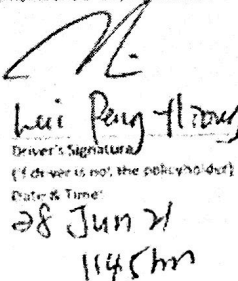 Lui Peng Hiong
Driver's Signature
(if driver is not the policyholder)
Date & Time:
28 Jun 21
1145hrs